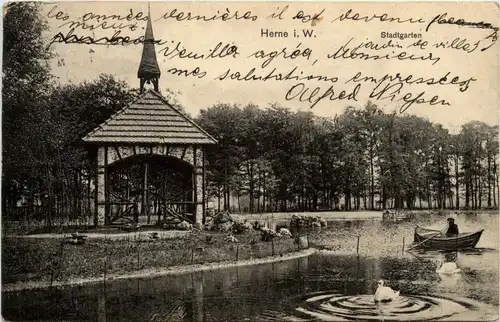 les années dernières il est devenu
mieux
jardin de ville
Herne i. W.
Stadtgarten
Veuillez agréer, Monsieur
mes salutations empressées
Alfred